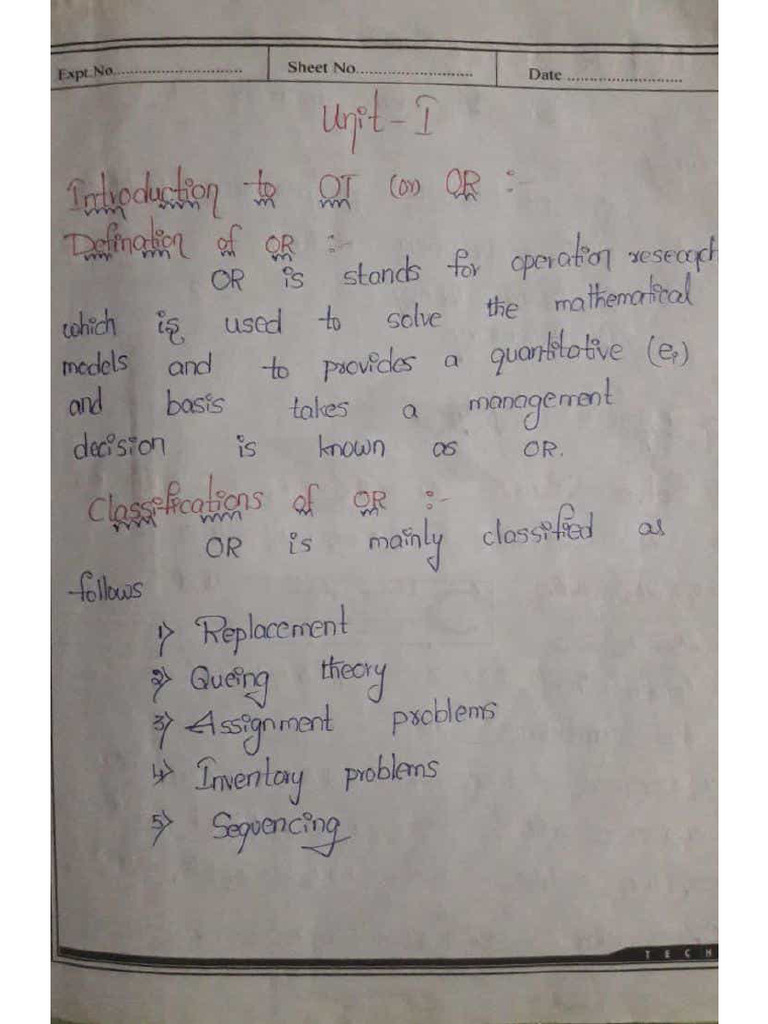 Expt.No............................ Sheet No.......................... Date ..........................
Unit - I
Introduction to OT (or) OR :-
Defination of OR :-
OR is stands for operation research
which is used to solve the mathematical
models and to provides a quantitative
and basis takes a management
decision is known as OR.
Classifications of OR :-
OR is mainly classified as
follows
1) Replacement
2) Queing theory
3) Assignment problems
4) Inventory problems
5) Sequencing
TECH